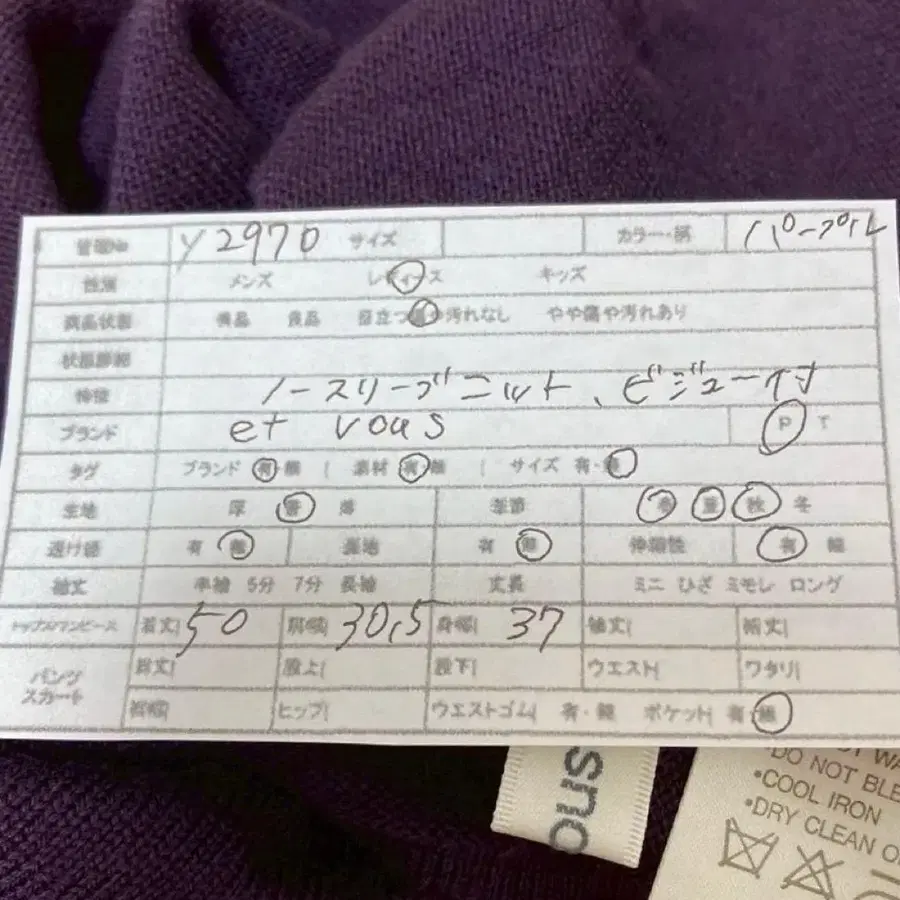 管理No y2970 サイズ カラー・柄 パープル
性別 メンズ レディース キッズ
商品状態 美品 良品 目立つ傷や汚れなし やや傷や汚れあり
状態詳細
特徴 ノースリーブニット、ビジュー付
ブランド et vous P T
タグ ブランド 有・無 | 素材 有・無 | サイズ 有・無
生地 厚 普 薄 季節 春 夏 秋 冬
透け感 有 無 裏地 有 無 伸縮性 有 無
袖丈 半袖 5分 7分 長袖 丈長 ミニ ひざ ミモレ ロング
トップス/ワンピース 着丈| 50 肩幅| 30,5 身幅| 37 袖丈| 裄丈|
パンツ スカート 総丈| 股上| 股下| ウエスト| ワタリ|
裾幅| ヒップ| ウエストゴム| 有・無 ポケット| 有・無
DO NOT BLE
•COOL IRON
•DRY CLEAN O